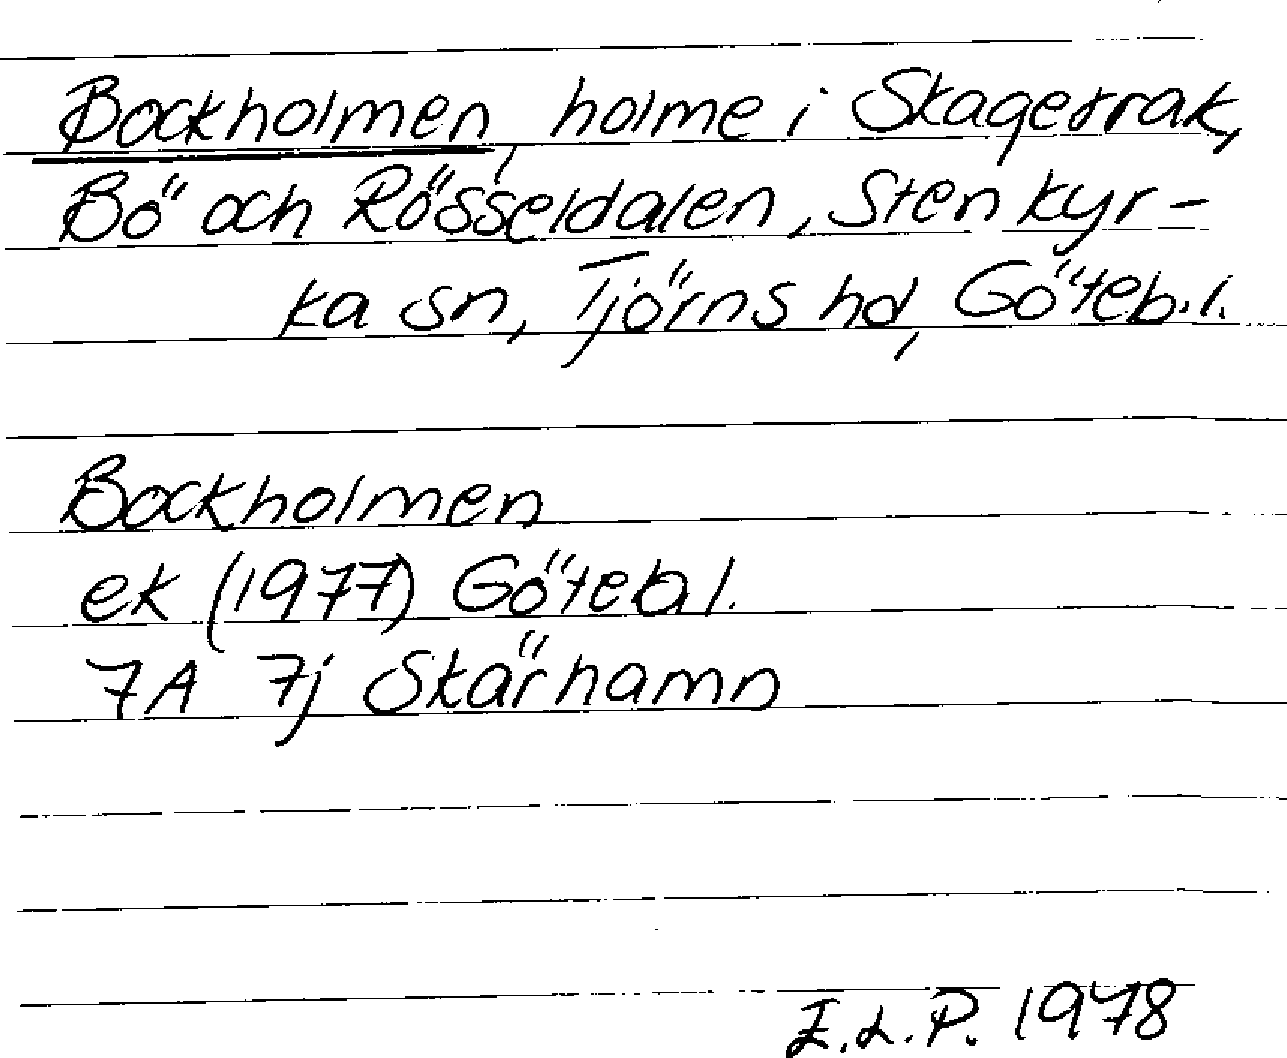 Bockholmen, holme i Skagerrak,
Bö och Rösseldalen, Stenkyr-
ka sn, Tjörns hd, Göteb.l.
Bockholmen
ek (1977) Göteb l.
7A 7j Skärhamn
E.L.P. 1978